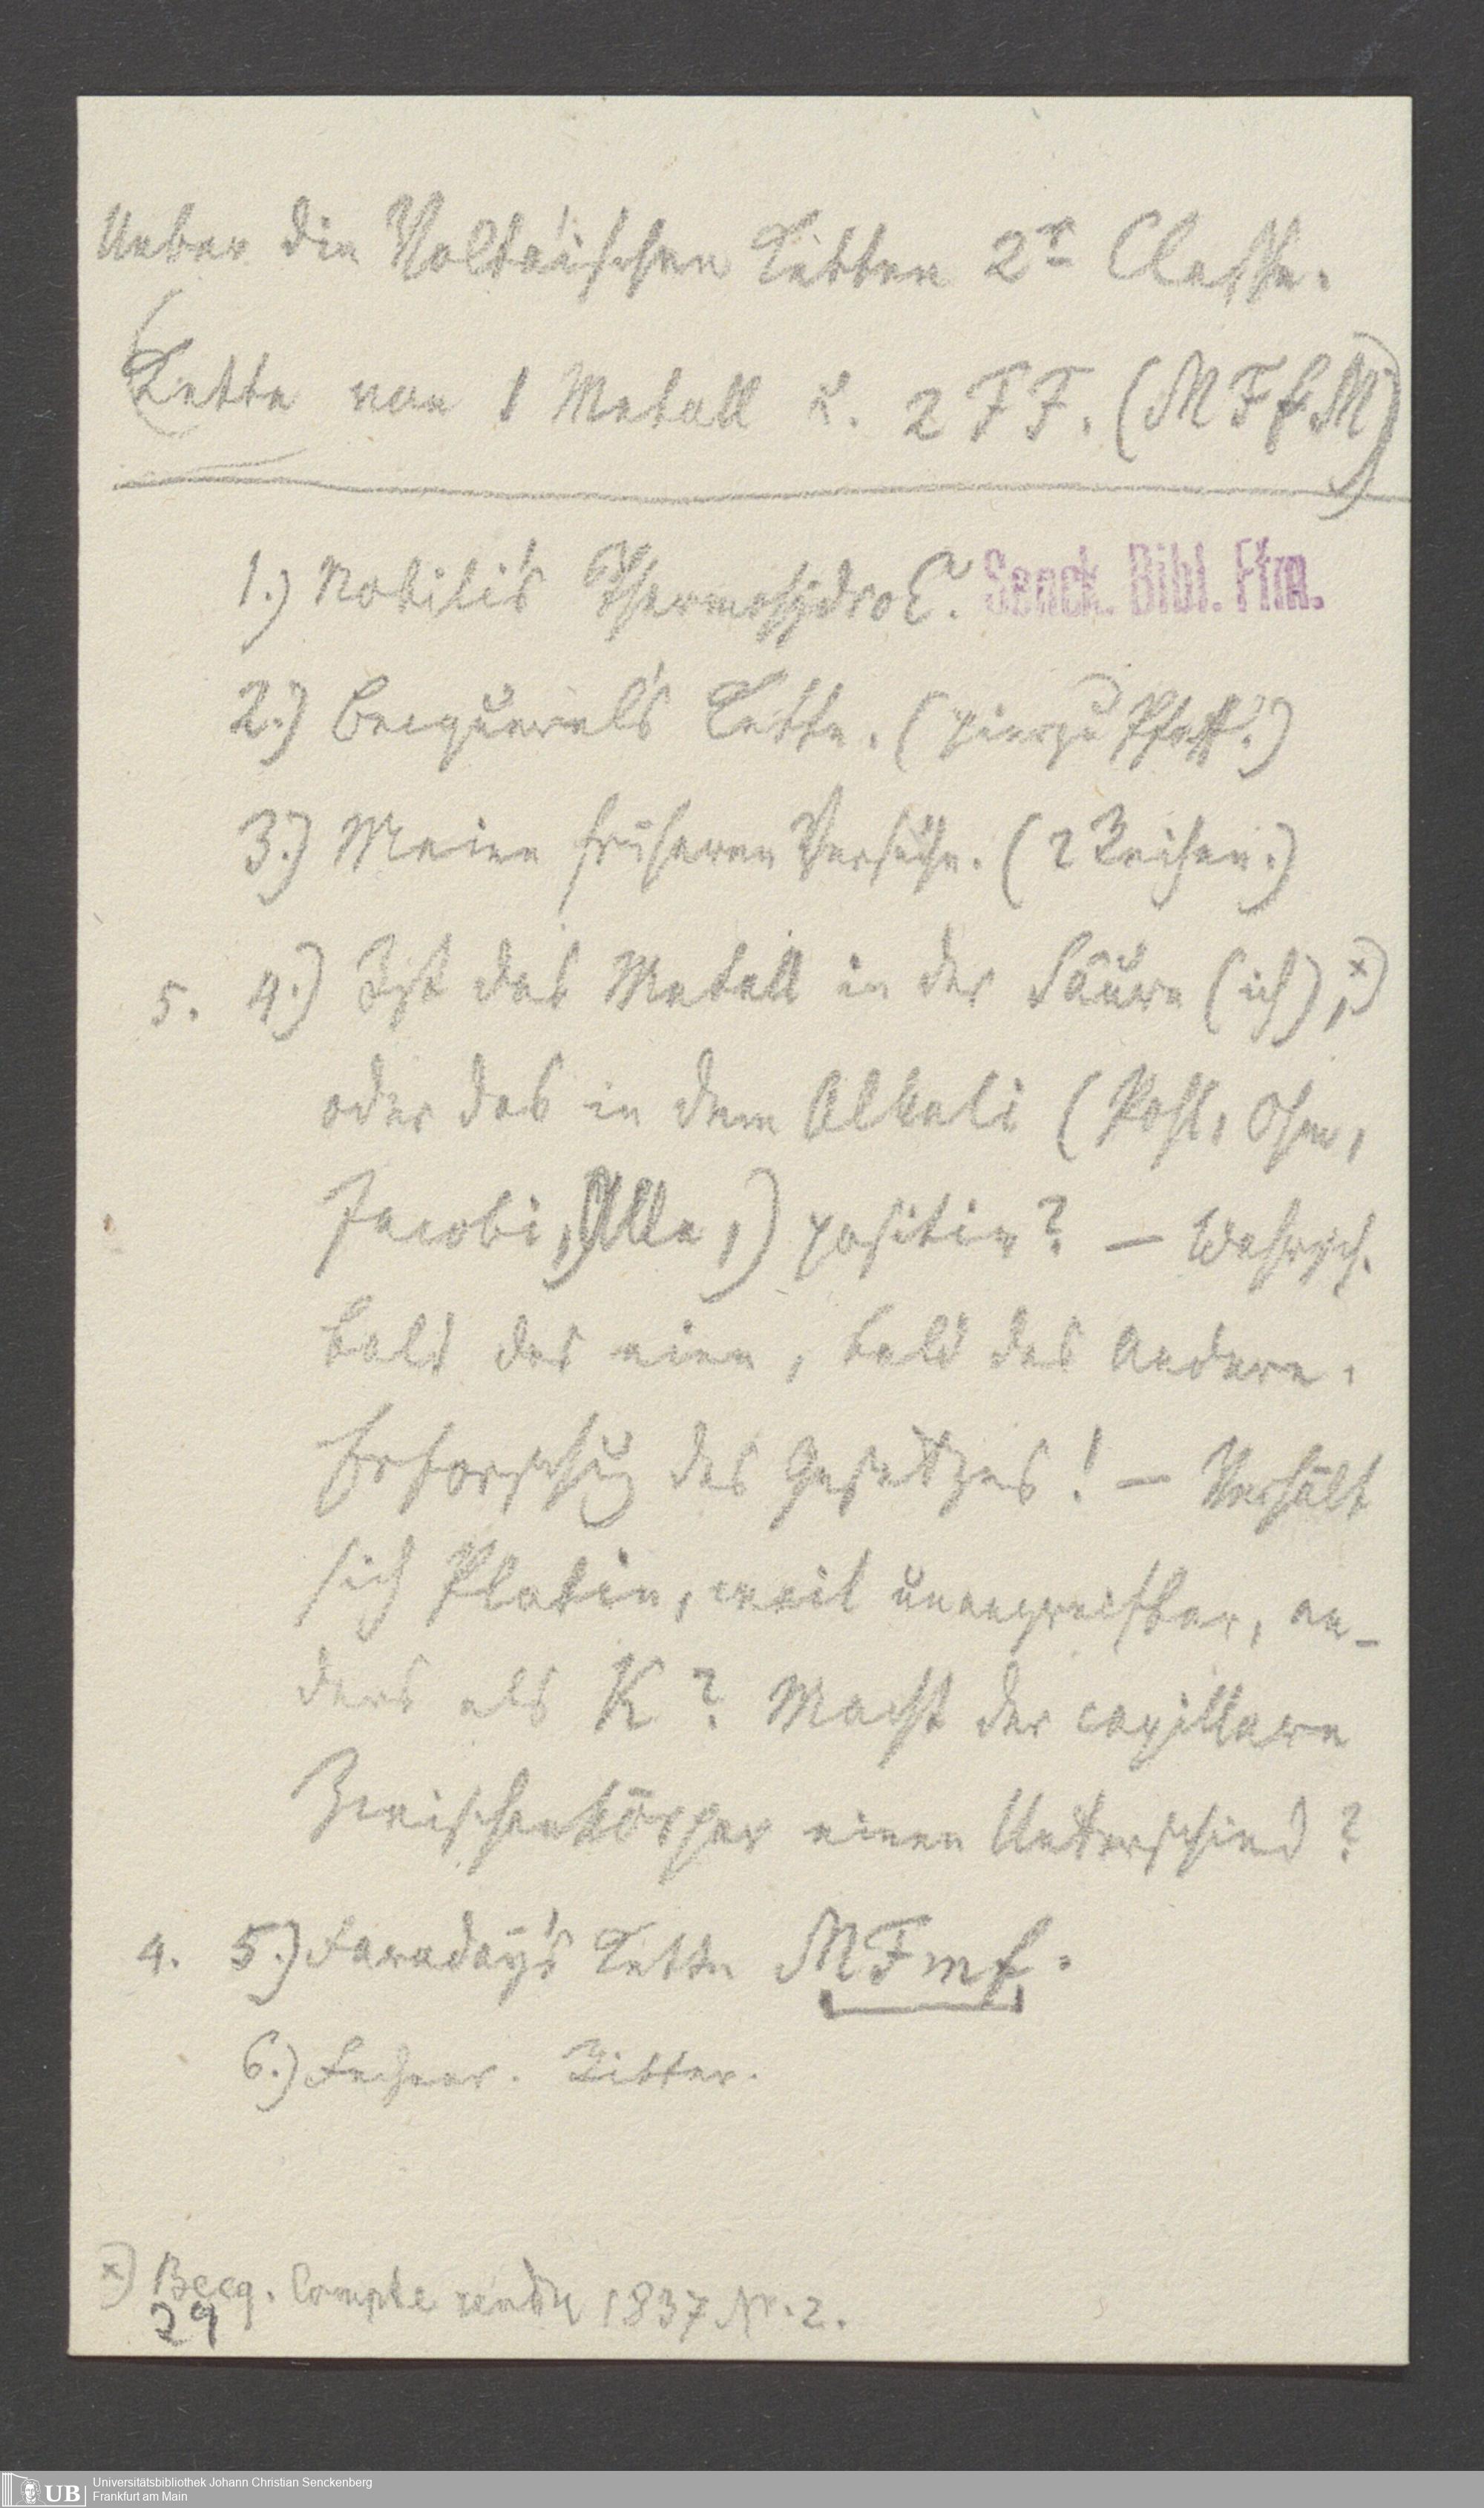 Ueber die Voltaischen Ketten 2r Classe.
(Kette von 1 Metall u. 2 FF. (MFfM)
1.) Nobili's ThermohydroE. Senck. Bibl. Ffm.
2.) Becquerel's Kette. (hierzu Pfaff.)
3.) Meine früheren Versuche. (2 Reihen.)
5. 4.) Ist das Metall in der Säure (ich), x)
oder das in dem Alkali (Pohl, Ohm,
Jacobi, Alle,) positiv? — Wahrsch.
bald das eine, bald das Andere.
Erforschung des Gesetzes! — Verhält
sich Platin, weil unangreifbar, an-
ders als K? Macht der capillare
Zwischenkörper einen Unterschied?
4. 5.) Faraday's Kette MFmf.
6.) Fechner. Ritter.
x) Becq. Compte rendu 1837 Nr. 2.
29
UB
Universitätsbibliothek Johann Christian Senckenberg
Frankfurt am Main